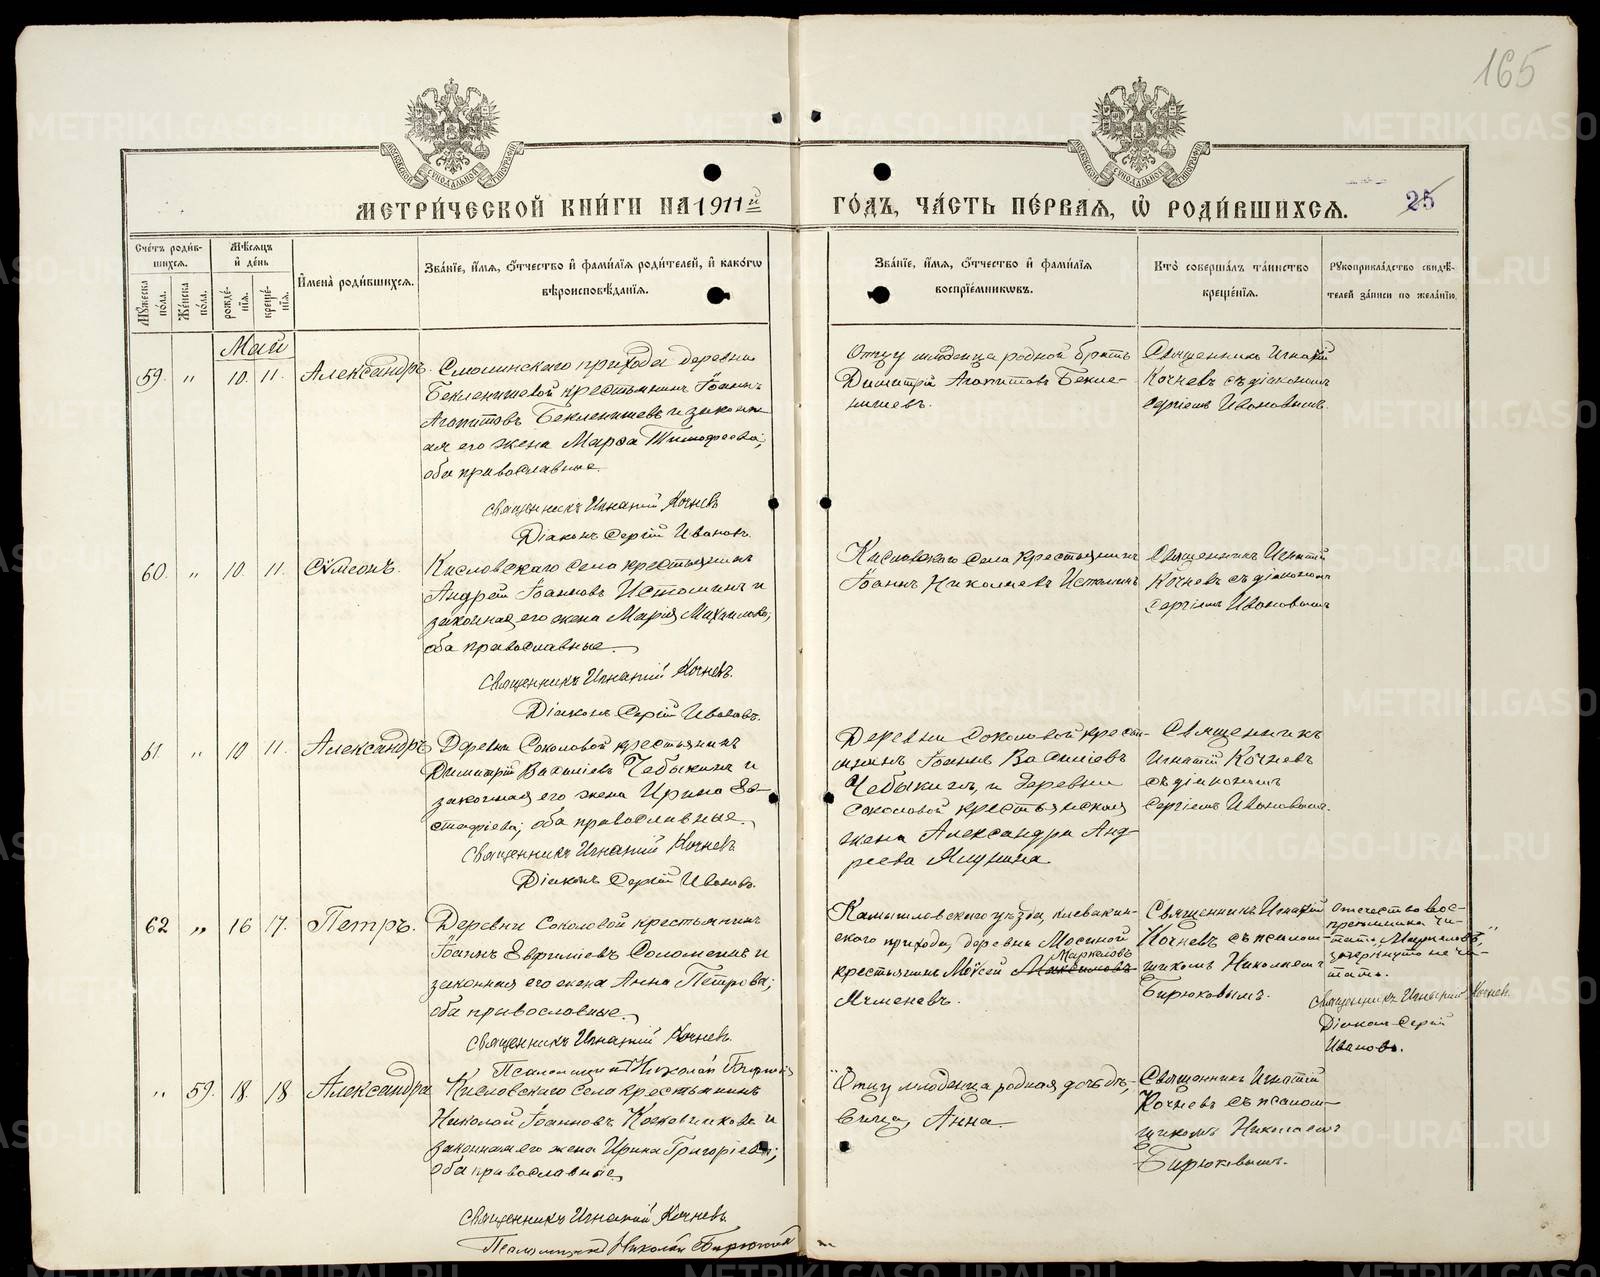 165
МЕТРИ́ЧЕСКОЙ КНИ́ГИ НА 1911 й
ГО́ДЪ, ЧА́СТЬ ПЕ́РВАЯ, Ѡ РОДИ́ВШИХСЯ.
25
Сче́тъ роди́в-
шихся.
Мѣ́сяцъ
и де́нь
Имена̀ роди́вшихся.
Зва́нїе, и́мя, о́тчество и фами́лїя роди́телей, и како́гѡ
вѣроисповѣ́данїя.
Зва́нїе, и́мя, о́тчество и фами́лїя
воспрїе́мниковъ.
Кто̀ соверша́лъ та́инство
креще́нїя.
Рꙋкоприкла́дство свидѣ́-
телей за́писи по жела́нїю.
Мꙋ́жеска
по́ла.
Же́нска
по́ла.
рожде́-
нїя.
креще́-
нїя.
Май
59. " 10. 11. Александръ.
Смолинскаго прихода деревни
Бекленищевой крестьянинъ Іоаннъ
Агапитовъ Бекленищевъ и законн-
ая его жена Марѳа Тимофеева;
оба православные.
Священникъ Игнатій Кочневъ
Діаконъ Сергій Ивановъ.
Отцу младенца родной братъ
Димитрій Агапитовъ Бекле-
нищевъ.
Священникъ Игнатій
Кочневъ съ діакономъ
Сергіемъ Ивановымъ.
60. " 10. 11. Сѵмеонъ.
Кисловскаго села крестьянинъ
Андрей Іоанновъ Истоминъ и
законная его жена Марія Михаилова;
оба православные.
Священникъ Игнатій Кочневъ.
Діаконъ Сергій Ивановъ.
Кисловскаго села крестьянинъ
Іоаннъ Николаевъ Истоминъ
Священникъ Игнатій
Кочневъ съ діакономъ
Сергіемъ Ивановымъ
61 " 10 11. Александръ
Деревни Соколовой крестьянинъ
Димитрій Василіевъ Чебыкинъ и
законная его жена Ирина Ев-
стафіева; оба православные.
Священникъ Игнатій Кочневъ
Діаконъ Сергій Ивановъ.
Деревни Соколовой крестья-
нинъ Іоаннъ Василіевъ
Чебыкинъ, и деревни
Соколовой крестьянская
жена Александра Анд-
реева
Священникъ
Игнатій Кочневъ
съ діакономъ
Сергіемъ Ивановымъ.
62 " 16 17. Петръ.
Деревни Соколовой крестьянинъ
Іоаннъ Соломеинъ и
законная его жена Анна Петрова;
оба православные.
Священникъ Игнатій Кочневъ.
Псаломщикъ Николай Бирюковъ
Камышловскаго уѣзда,
прихода, деревни Мосиной
Маркеловъ
крестьянинъ Моѵсей Максимовъ
Священникъ Игнатій
Кочневъ съ псалом-
щикомъ Николаемъ
Бирюковымъ.
Отчество вос-
пріемника чи-
тать „Маркеловъ",
зачеркнуто не чи-
тать.
Священникъ Игнатій Кочнев.
Діаконъ Сергій
Ивановъ.
" 59. 18. 18 Александра
Кисловскаго села крестьянинъ
Николай Іоанновъ и
законная его жена Ирина Григоріева;
оба православные
Священникъ Игнатій Кочневъ.
Псаломщикъ Николай Бирюковъ
Отцу младенца родная дочь дѣ-
вица, Анна
Священникъ Игнатій
Кочневъ съ псалом-
щикомъ Николаемъ
Бирюковымъ.
METRIKI.GASO-URAL.RU